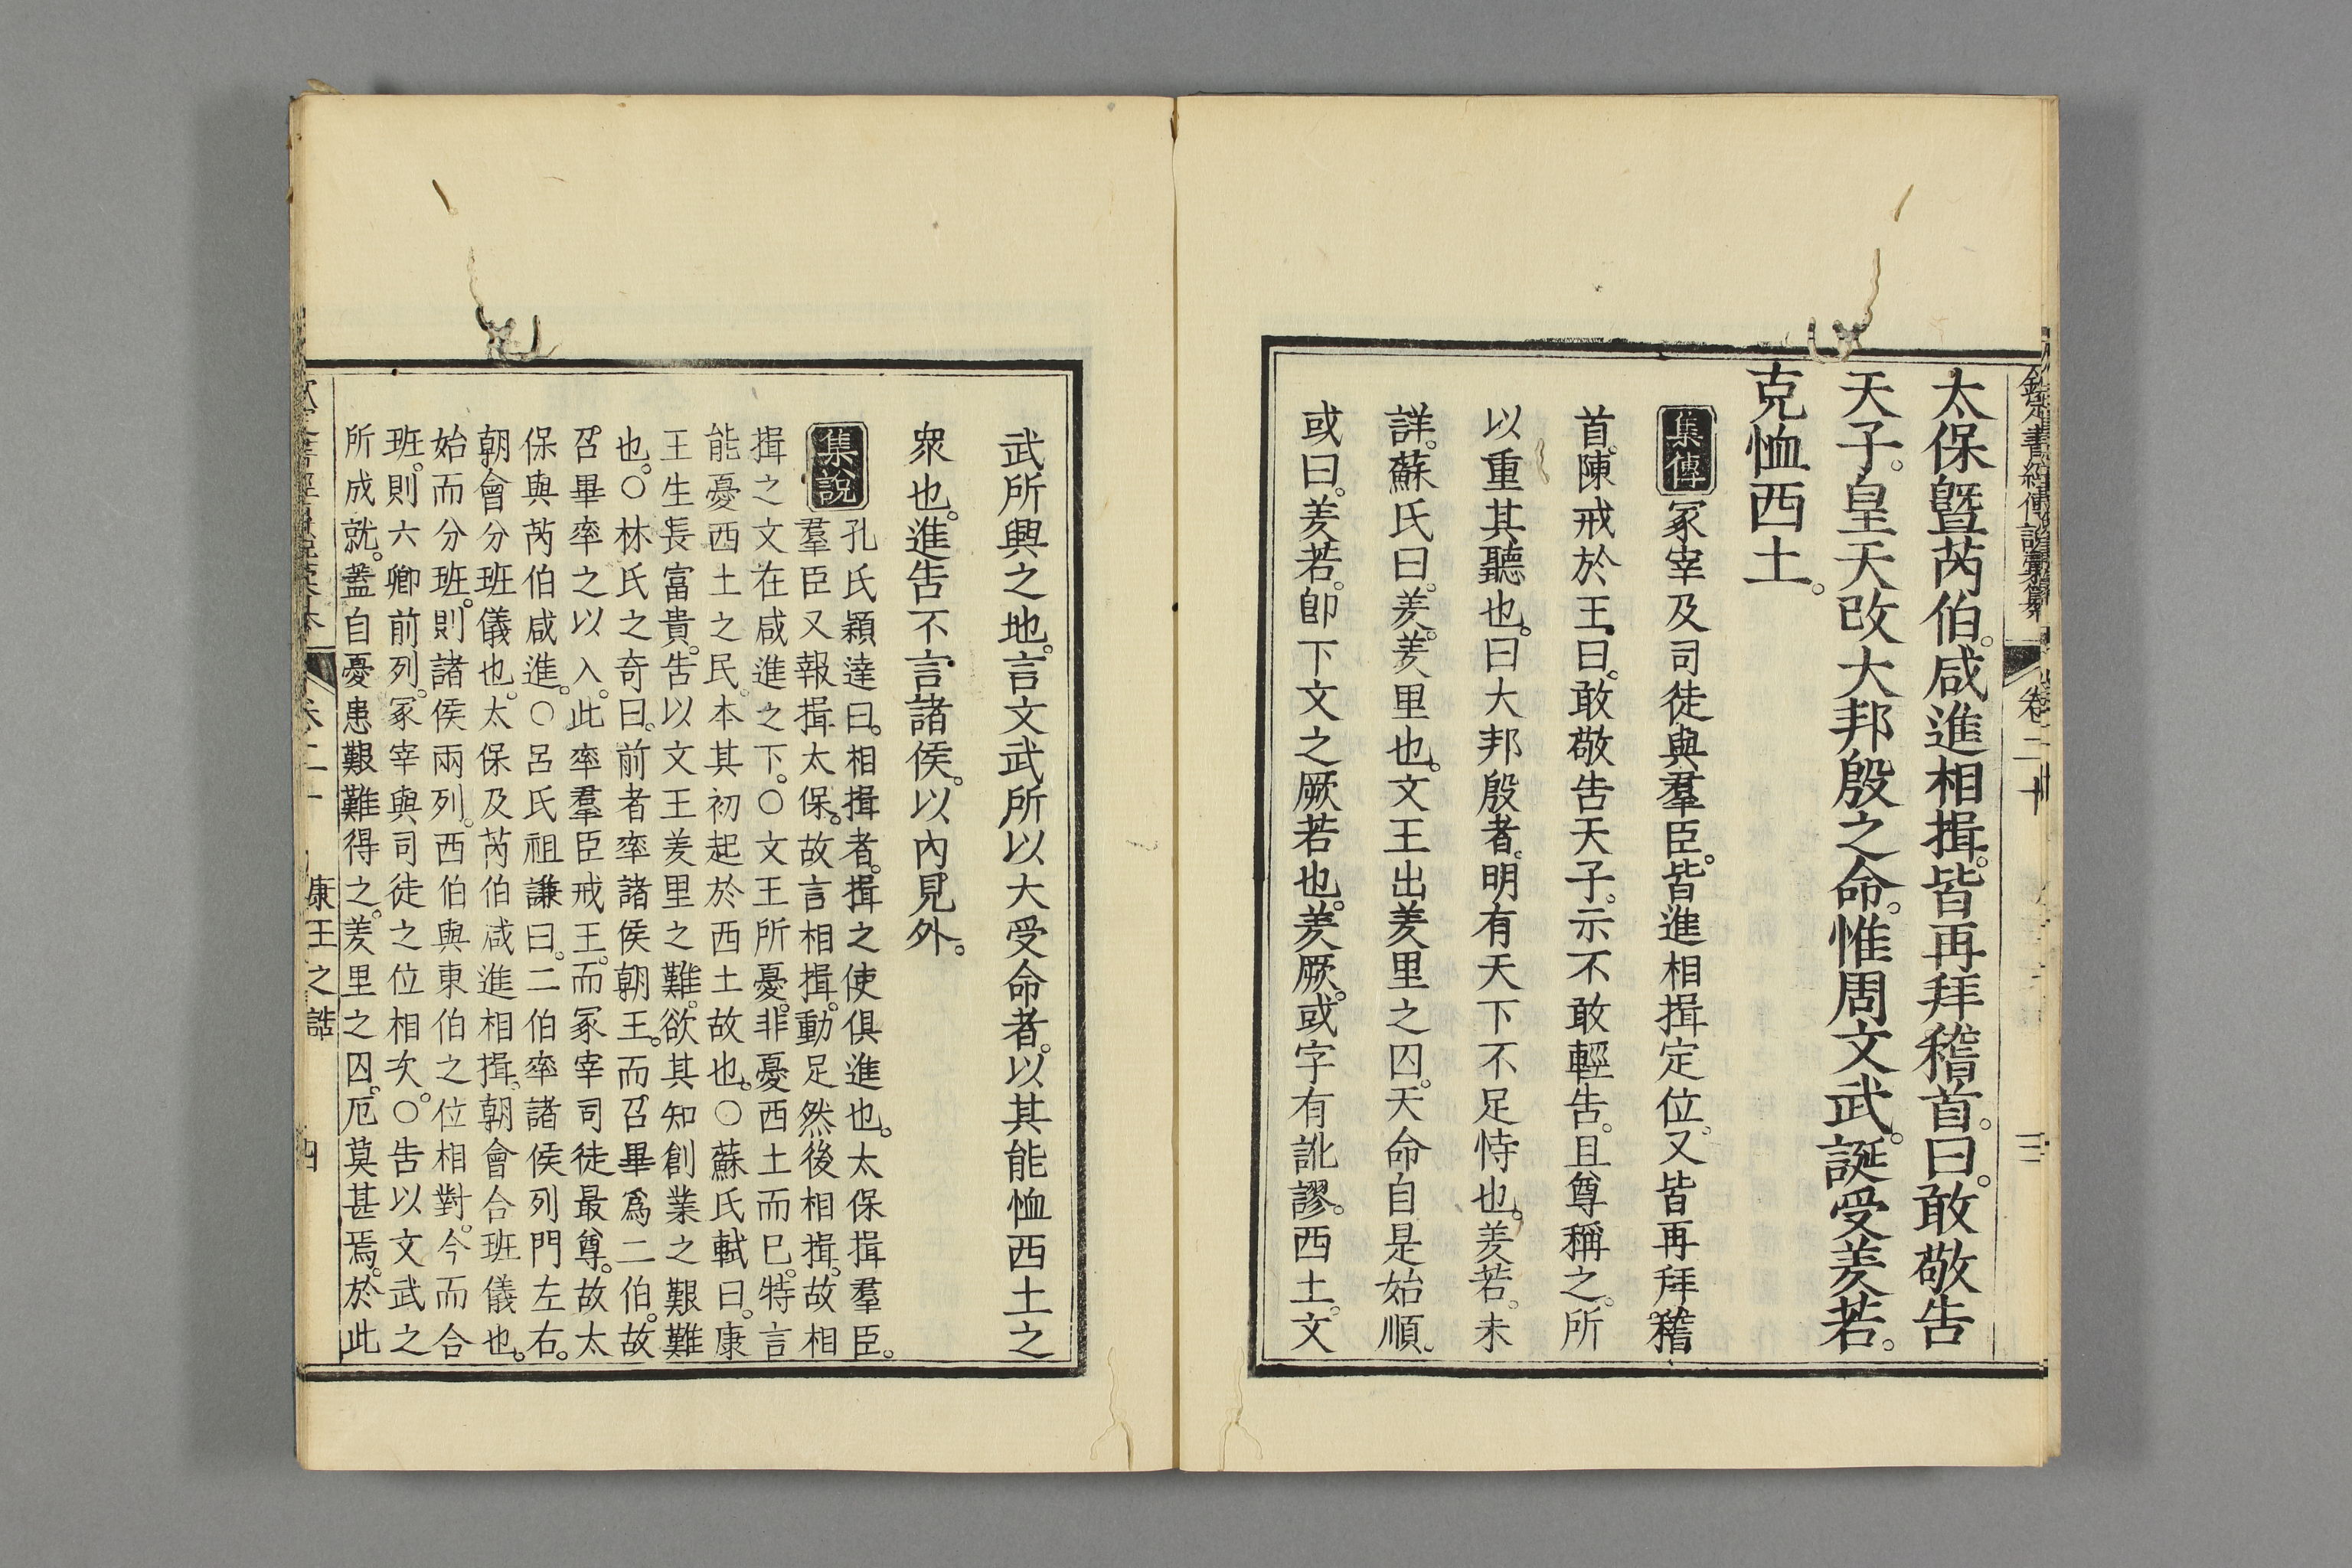 欽定書經傳說彙纂 卷二十 三
太保曁芮伯。咸進相揖。皆再拜稽首。曰。敢敬告
天子。皇天改大邦殷之命。惟周文武。誕受羑若。
克恤西土。
集傳 冢宰及司徒與羣臣。皆進相揖定位。又皆再拜稽
首。陳戒於王曰。敢敬告天子。示不敢輕告。且尊稱之。所
以重其聽也。曰大邦殷者。明有天下不足恃也。羑若。未
詳。蘇氏曰。羑。羑里也。文王出羑里之囚。天命自是始順。
或曰。羑若。卽下文之厥若也。羑厥。或字有訛謬。西土。文
武所興之地。言文武所以大受命者。以其能恤西土之
衆也。進告不言諸侯。以內見外。
集說 孔氏穎達曰。相揖者。揖之使俱進也。太保揖羣臣。
羣臣又報揖太保。故言相揖。動足然後相揖。故相
揖之文在咸進之下。○文王所憂。非憂西土而已。特言
能憂西土之民。本其初起於西土故也。○蘇氏軾曰。康
王生長富貴。告以文王羑里之難。欲其知創業之艱難
也。○林氏之奇曰。前者率諸侯朝王。而召畢爲二伯。故
召畢率之以入。此率羣臣戒王。而冢宰司徒最尊。故太
保與芮伯咸進。○呂氏祖謙曰。二伯率諸侯列門左右。
朝會分班儀也。太保及芮伯咸進相揖。朝會合班儀也。
始而分班。則諸侯兩列。西伯與東伯之位相對。今而合
班。則六卿前列。冢宰與司徒之位相次。○告以文武之
所成就。蓋自憂患艱難得之。羑里之囚。厄莫甚焉。於此
康王之誥 四